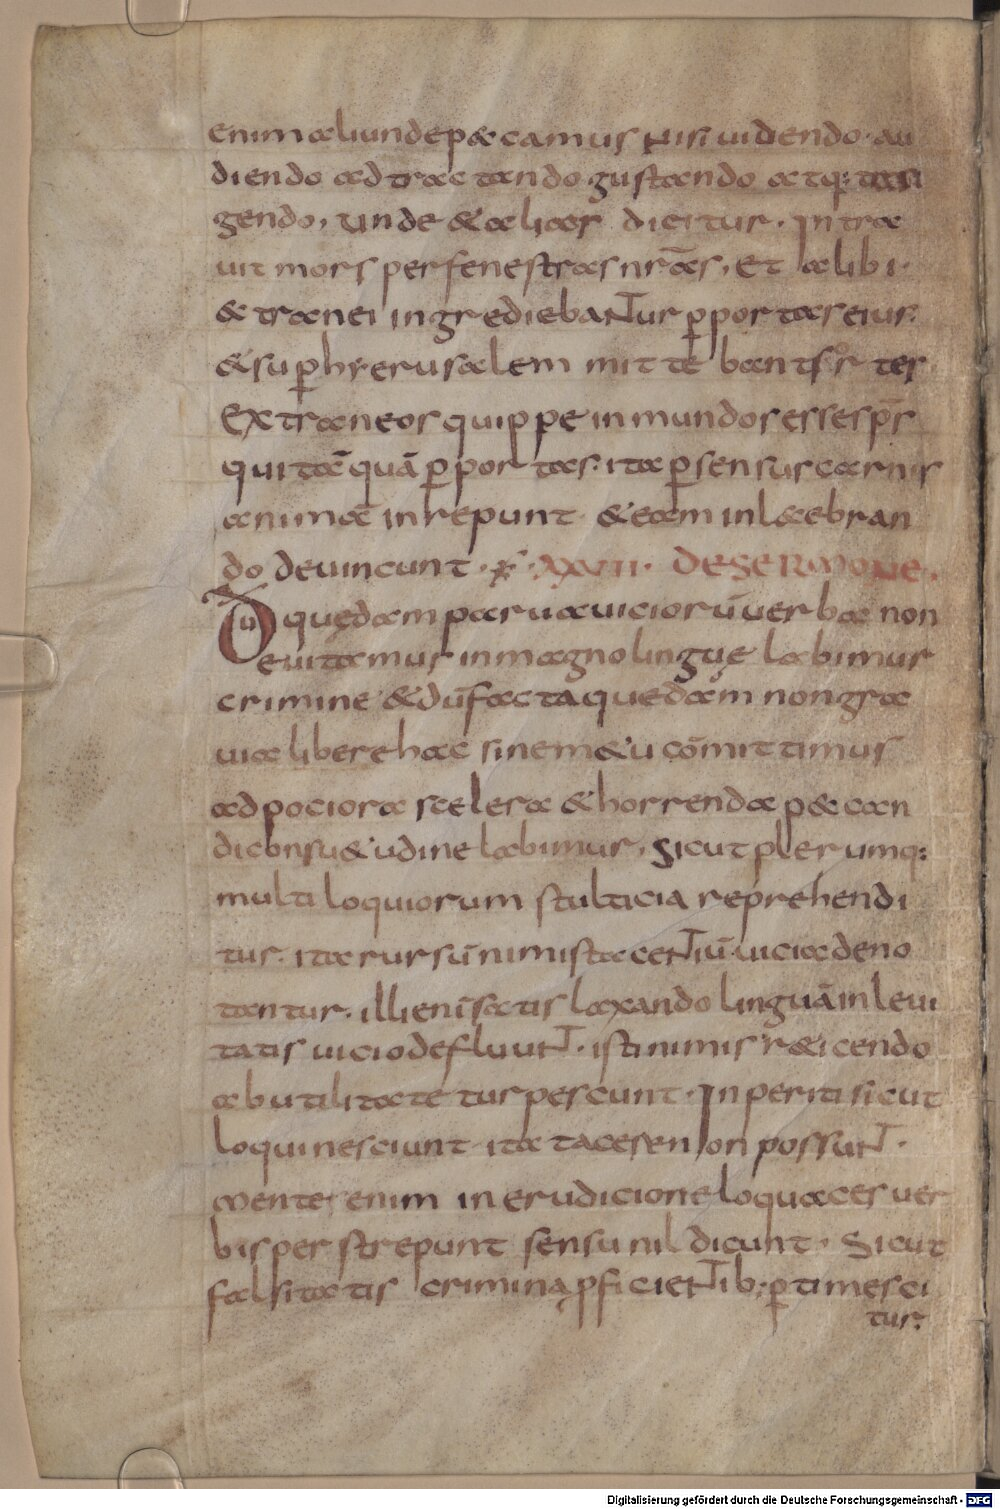 enim aliunde p&camus nisi uidendo· au
diendo adtractando· gustando atq: tan
gendo· unde & alias dicitur· Intra
uit mors per fenestras nr̄as· Et alibi·
& tranei ingrediebantur ꝑ portas eius:
& suꝑ hyerusalem mittebant sor tes·
Extraneos quippe inmundos esse sp̄s
qui tā quā ꝑ portas: ita ꝑ sensus carnis
animae inrepunt & eam inlaebran
do deuincunt· XXVII· DE SERMONE·
Dū quędam parua uiciorū uerba non
euitamus in magno linguę labimur
crimine & dū facta quedam non gra
uia libere hac sine m&u cōmittimus
ad pociora scelera & horrenda p&can
di consu&udine labimur· Sicut plerumq:
multi loquiorum stulticia reprehendi
tur· ita rursū nimis tacentiū uicia deno
tantur· illi enī satis laxando linguā in leui
tatis uicio defluunt· isti nimis r&icendo
ab utilitate turpescunt· Inperiti sicut
loqui nesciunt ita tacere non possunt·
Mente enim inerudicione loquaces uer
bis perstrepunt sensu nil dicunt· Sicut
falsitatis crimina ꝓficientib; ꝑtimesci
tur:
Digitalisierung gefördert durch die Deutsche Forschungsgemeinschaft - DFG